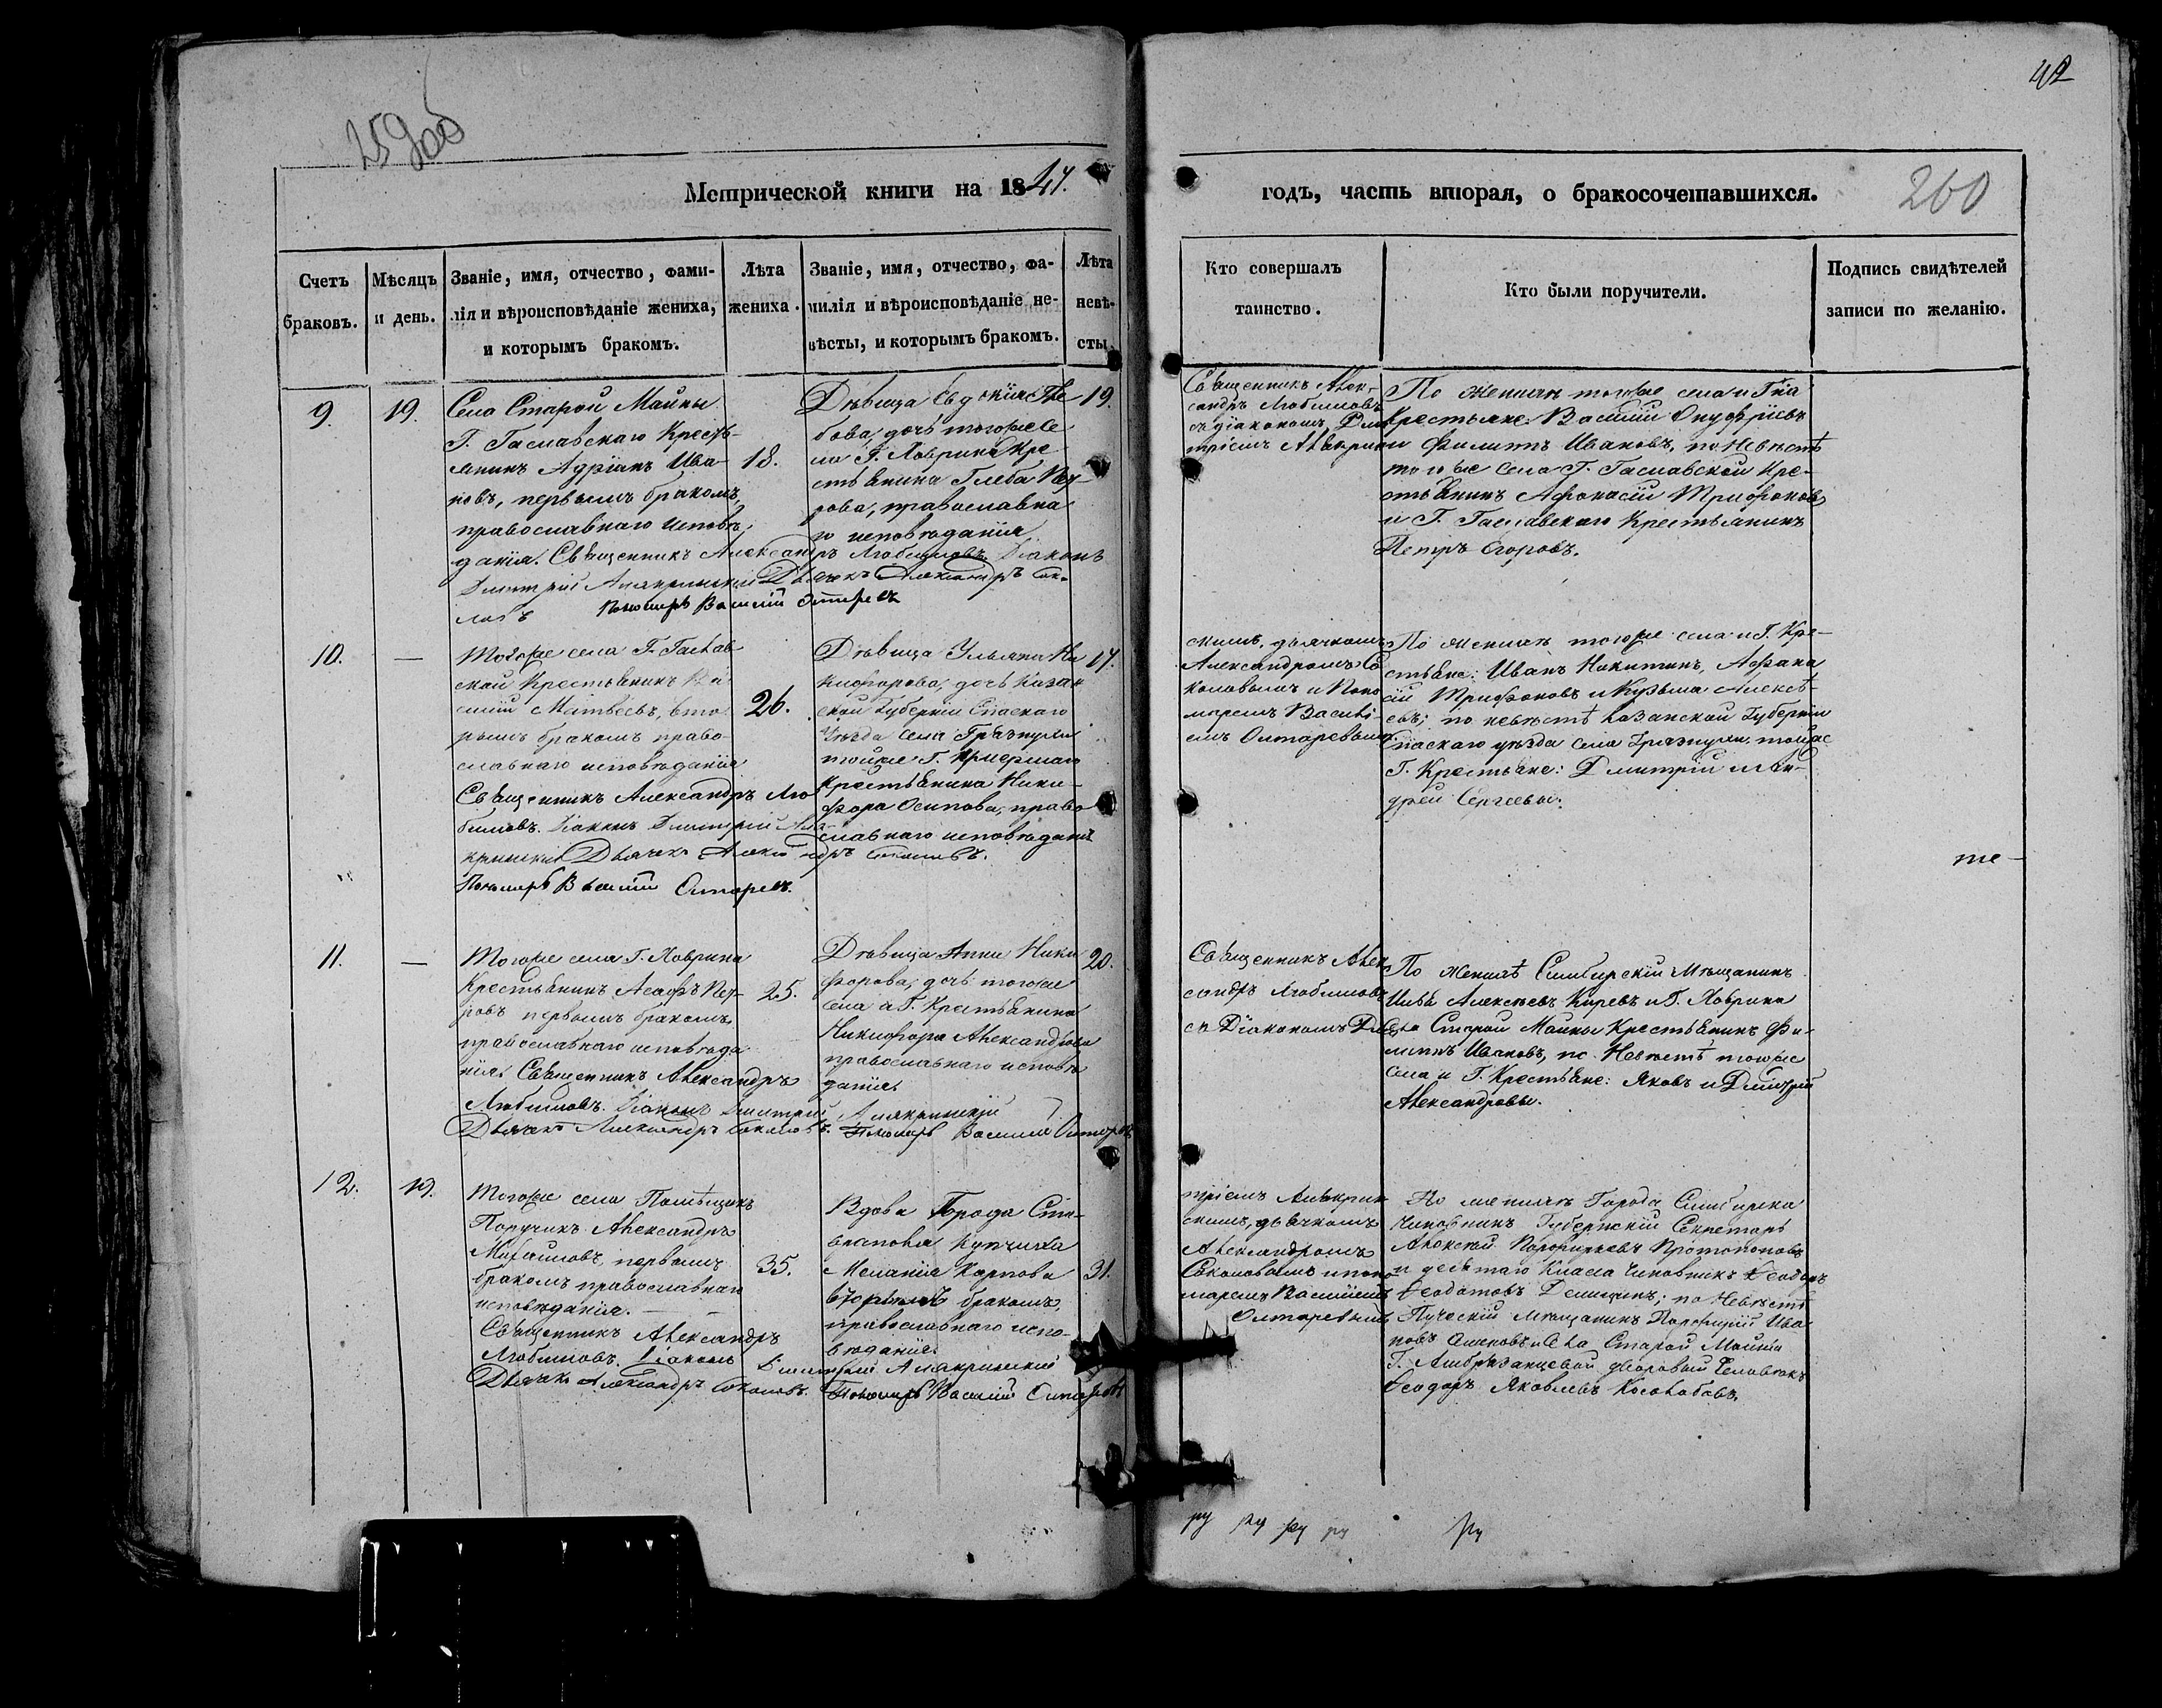 259об
42
Метрической книги на 1847.
годъ, часть вторая, о бракосочетавшихся.
260
Счетъ
браковъ.
Мѣсяцъ
и день.
Званіе, имя, отчество, фами-
лія и вѣроисповѣданіе жениха,
и которымъ бракомъ.
Лѣта
жениха.
Званіе, имя, отчество, фа-
милія и вѣроисповѣданіе не-
вѣсты, и которымъ бракомъ.
Лѣта
невѣ-
сты.
Кто совершалъ
таинство.
Кто были поручители.
Подпись свидѣтелей
записи по желанію.
9.
19.
Села Старой Майны
Г. Гаславскаго Кресть-
янинъ Адріанъ Ива-
новъ, первымъ бракомъ,
православнаго исповѣ-
данія. Священникъ Александръ Любимовъ. Діаконъ
Дмитрій Дьячекъ Александръ Соко-
ловъ Пономарь Василій
18.
Дѣвица Евдокія Гле
бова, дочь тогоже Се
ла Г. Лаврина Кре
стьянина Глеба Пет-
рова, православна
го исповѣданія
19.
Священникъ Алек-
сандръ Любимовъ
съ діакономъ Дми
тріемъ
По женихѣ тогоже села и Гна
Крестьяне: Василій Онуфріевъ
и Филипъ Ивановъ, по Невѣстѣ
тогоже села Г. Гаславской Кре-
стьянинъ Афонасій Трифоновъ
и Г. Гаславскаго Крестьянинъ
Петръ Егоровъ.
10.
—
Тогоже села Г. Гаслав
ской Крестьянинъ Ва
силій Матвеевъ, вто
рымъ бракомъ право-
славнаго исповѣданія
Священникъ Александръ Лю
бимовъ. Діаконъ Дмитрій
Дьячекъ Александръ Соколовъ.
Пономарь Василій
26.
Дѣвица Ульяна Ни
кифорова, дочь Казан
ской Губерніи Спаскаго
Уѣзда села
тойже Г. умершаго
Крестьянина Ники-
фора Осипова, право
славнаго исповѣданія
17.
скимъ, дьячкомъ
Александромъ Со
коловымъ и Поно
маремъ Василі-
емъ
По женихѣ тогоже села и Г. Кре-
стьяне: Иванъ Никитинъ, Афана
сій Трифоновъ и Кузьма Алексѣ-
евъ; по невѣстѣ Казанской Губерніи
Спаскаго уѣзда села тойже
Г. Крестьяне: Дмитрій и Ан-
дрей Сергеевы.
те-
11.
—
Тогоже села Г. Лаврина
Крестьянинъ Асафъ Пет-
ровъ первымъ бракомъ
православнаго исповѣда
нія. Священникъ Александръ
Любимовъ. Діаконъ Дмитрій
Дьячекъ Александръ Соколовъ. Пономарь Василій
25.
Дѣвица Анна Ники
форова, дочь тогоже
села и Г. Крестьянина
Никифора Александрова
православнаго исповѣ
данія.
20.
Священникъ Алек
сандръ Любимовъ
съ Діакономъ Дми
По женихѣ Симбирскій Мѣщанинъ
Илья Алексѣевъ Киревъ и Г. Лаврина
Села Старой Майны Крестьянинъ Фи-
липъ Ивановъ, по Невѣстѣ тогоже
села и Г. Крестьяне: Яковъ и Дмитрій
Александровы.
12.
19.
Тогоже села Помѣщикъ
Поручикъ Александръ
Михайловъ, первымъ
бракомъ православнаго
исповѣданія. —
Священникъ Александръ
Любимовъ. Діаконъ Дмитрій
Дьячекъ Александръ Соколовъ. Пономарь Василій
35.
Вдова Города Ста-
врополя Купчиха
Меланія Карпова
вторымъ бракомъ,
православнаго испо-
вѣданія.
31.
тріемъ
скимъ, дьячкомъ
Александромъ
Соколовымъ и поно
маремъ Василіемъ
По женихѣ Города Симбирска
Чиновникъ Губернскій Секретарь
Протопоповъ
и десятаго Класа Чиновникъ
по Невѣстѣ
Мѣщанинъ Порфирій Ива
новъ и Села Старой Майны
Г. дворовый Человѣкъ
Ѳеодоръ Яковлевъ
ру ру ру ру ру